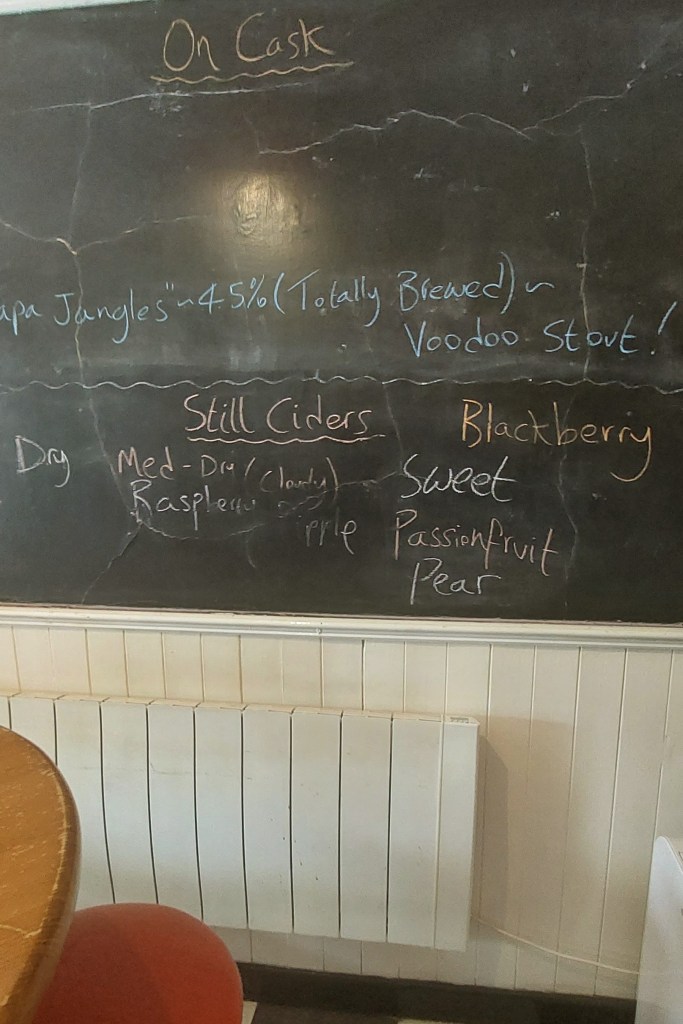 On Cask
apa Jangles" ~ 4.5% (Totally Brewed) ~
Voodoo Stout!
Still Ciders
Blackberry
Dry
Med-Dry/(Cloudy)
Sweet
Passionfruit
Pear